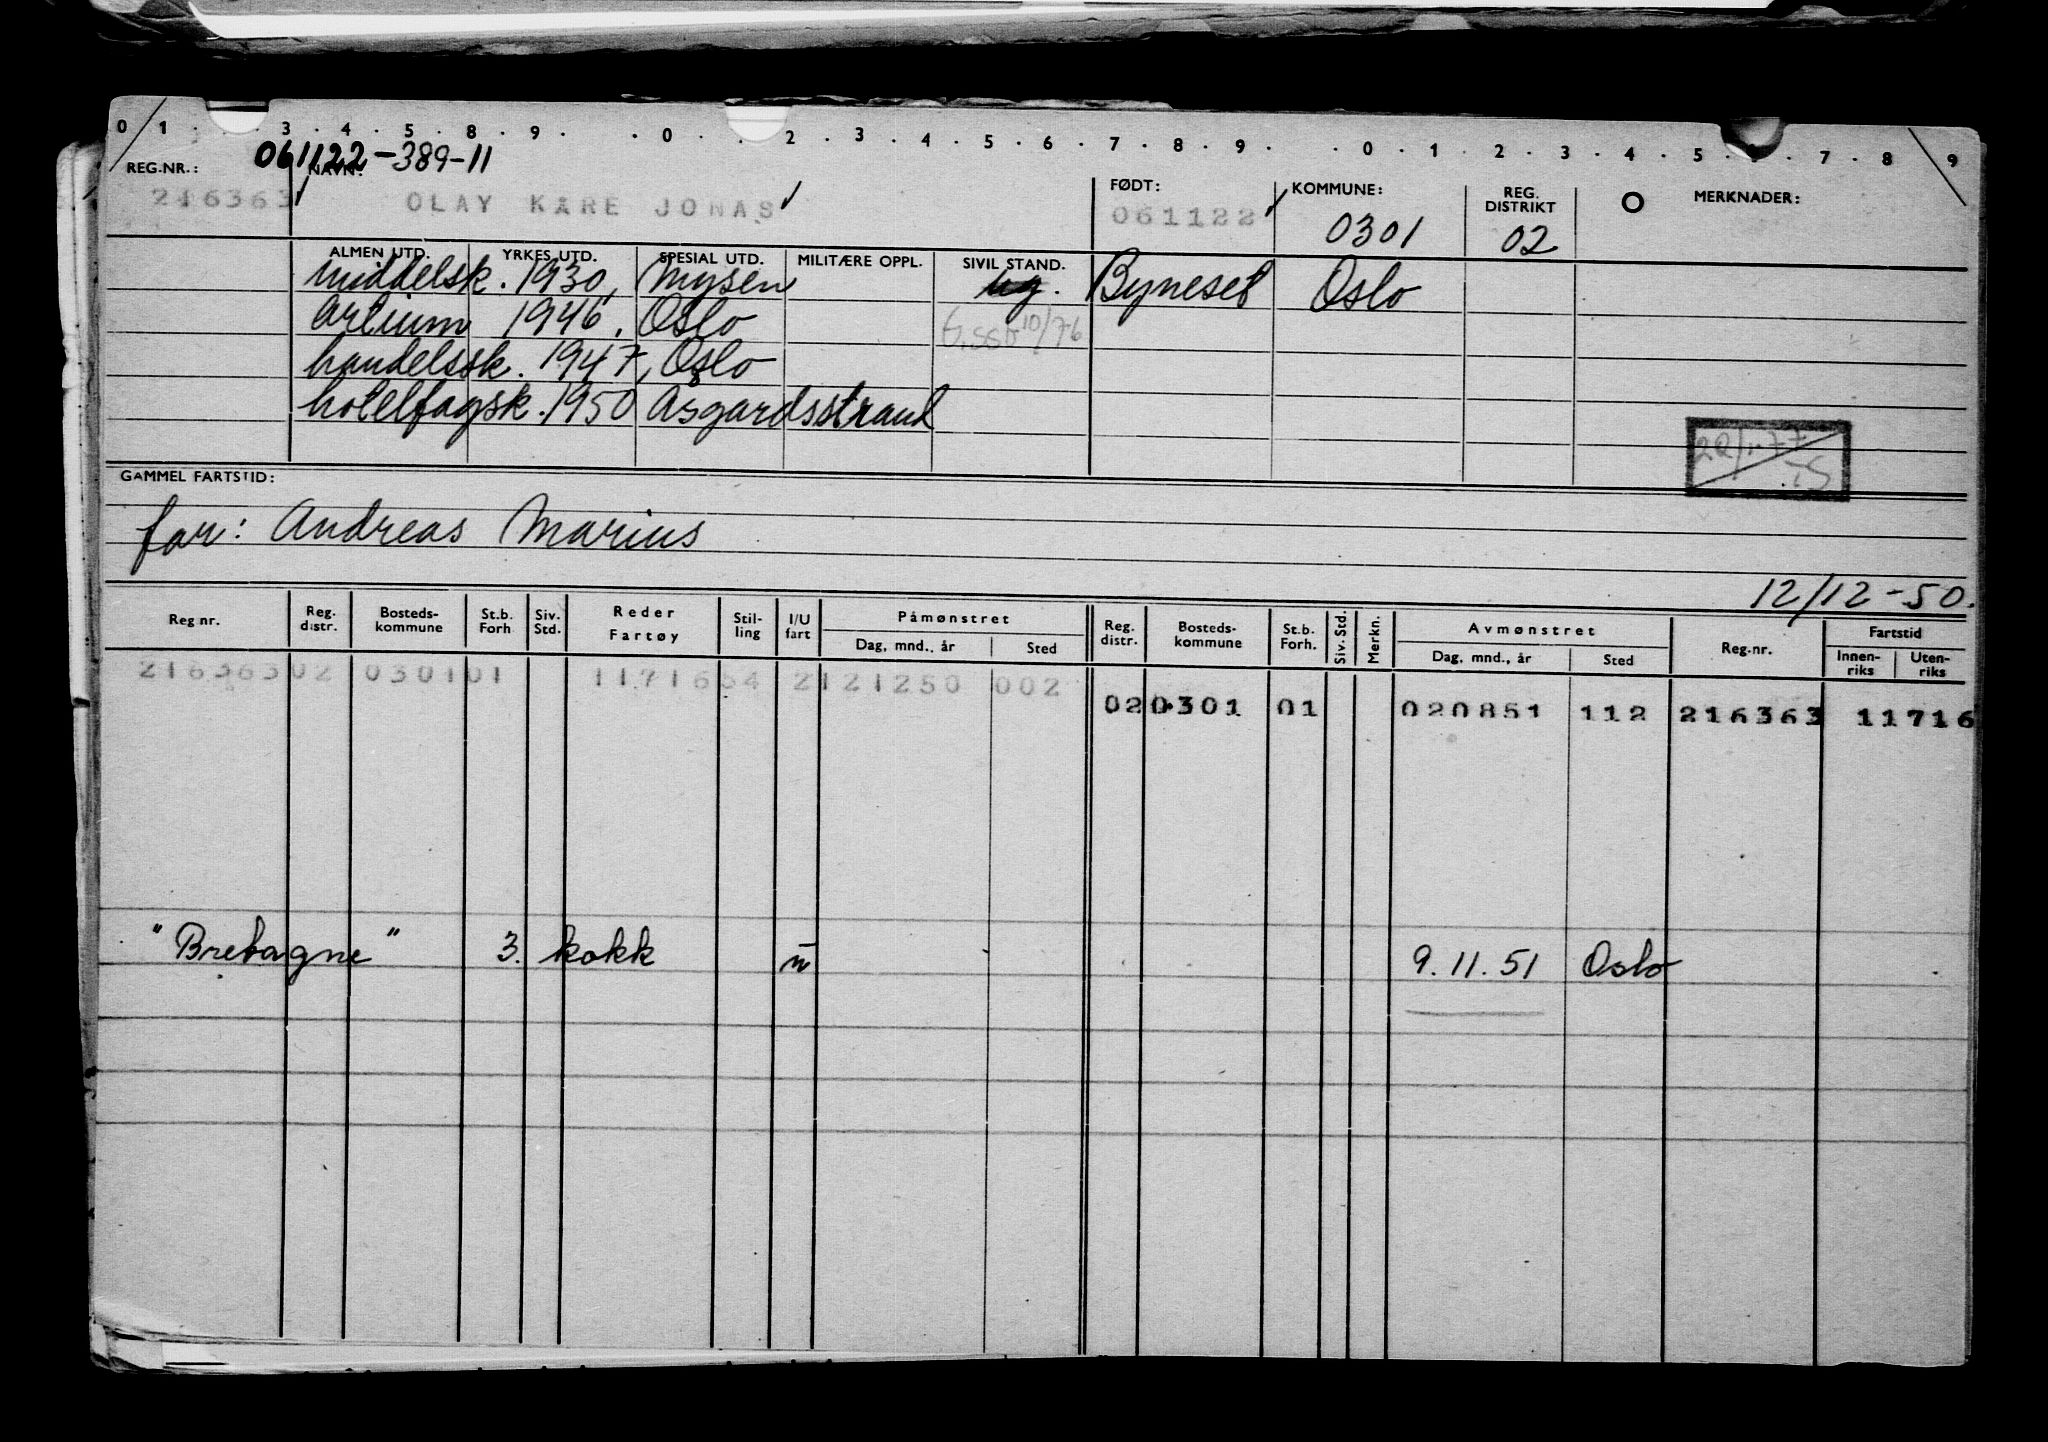 0 1 . . 3 . 4 . 5 . 8 . 9 . . 0 . . 2 . 3 . 4 . 5 . 6 . 7 . 8 . 9 . . 0 . 1 . 2 . 3 . 4 . 5 . 6 . 7 . 8 9
061122-389-11
REG.NR.: NAVN: FØDT: KOMMUNE: REG. DISTRIKT O MERKNADER:
216363 OLAY KARE JONAS 061122 0301 02
ALMEN UTD. YRKES UTD. SPESIAL UTD. MILITÆRE OPPL. SIVIL STAND.
middelsk. 1930, Mysen ug. Byneset Oslo
Artium 1946, Oslo 10/76
handelssk. 1947, Oslo
hotelfagsk. 1950 Åsgardsstrand
GAMMEL FARTSTID:
far: Andreas Marius
12/12-50.
Reg nr. Reg. distr. Bosteds- kommune St.b. Forh Siv. Std. Reder Fartøy Stil- ling I/U fart Påmønstret Dag, mnd., år Sted Reg. distr. Bosteds- kommune St.b. Forh. Siv. Std. Merkn. Avmønstret Dag, mnd., år Sted Reg.nr. Fartstid Innen- riks Uten- riks
216363 02 0301 01 1171654 2 121250 002
02 0301 01 020851 112 216363 11716
"Bretagne" 3. kokk u 9.11.51 Oslo